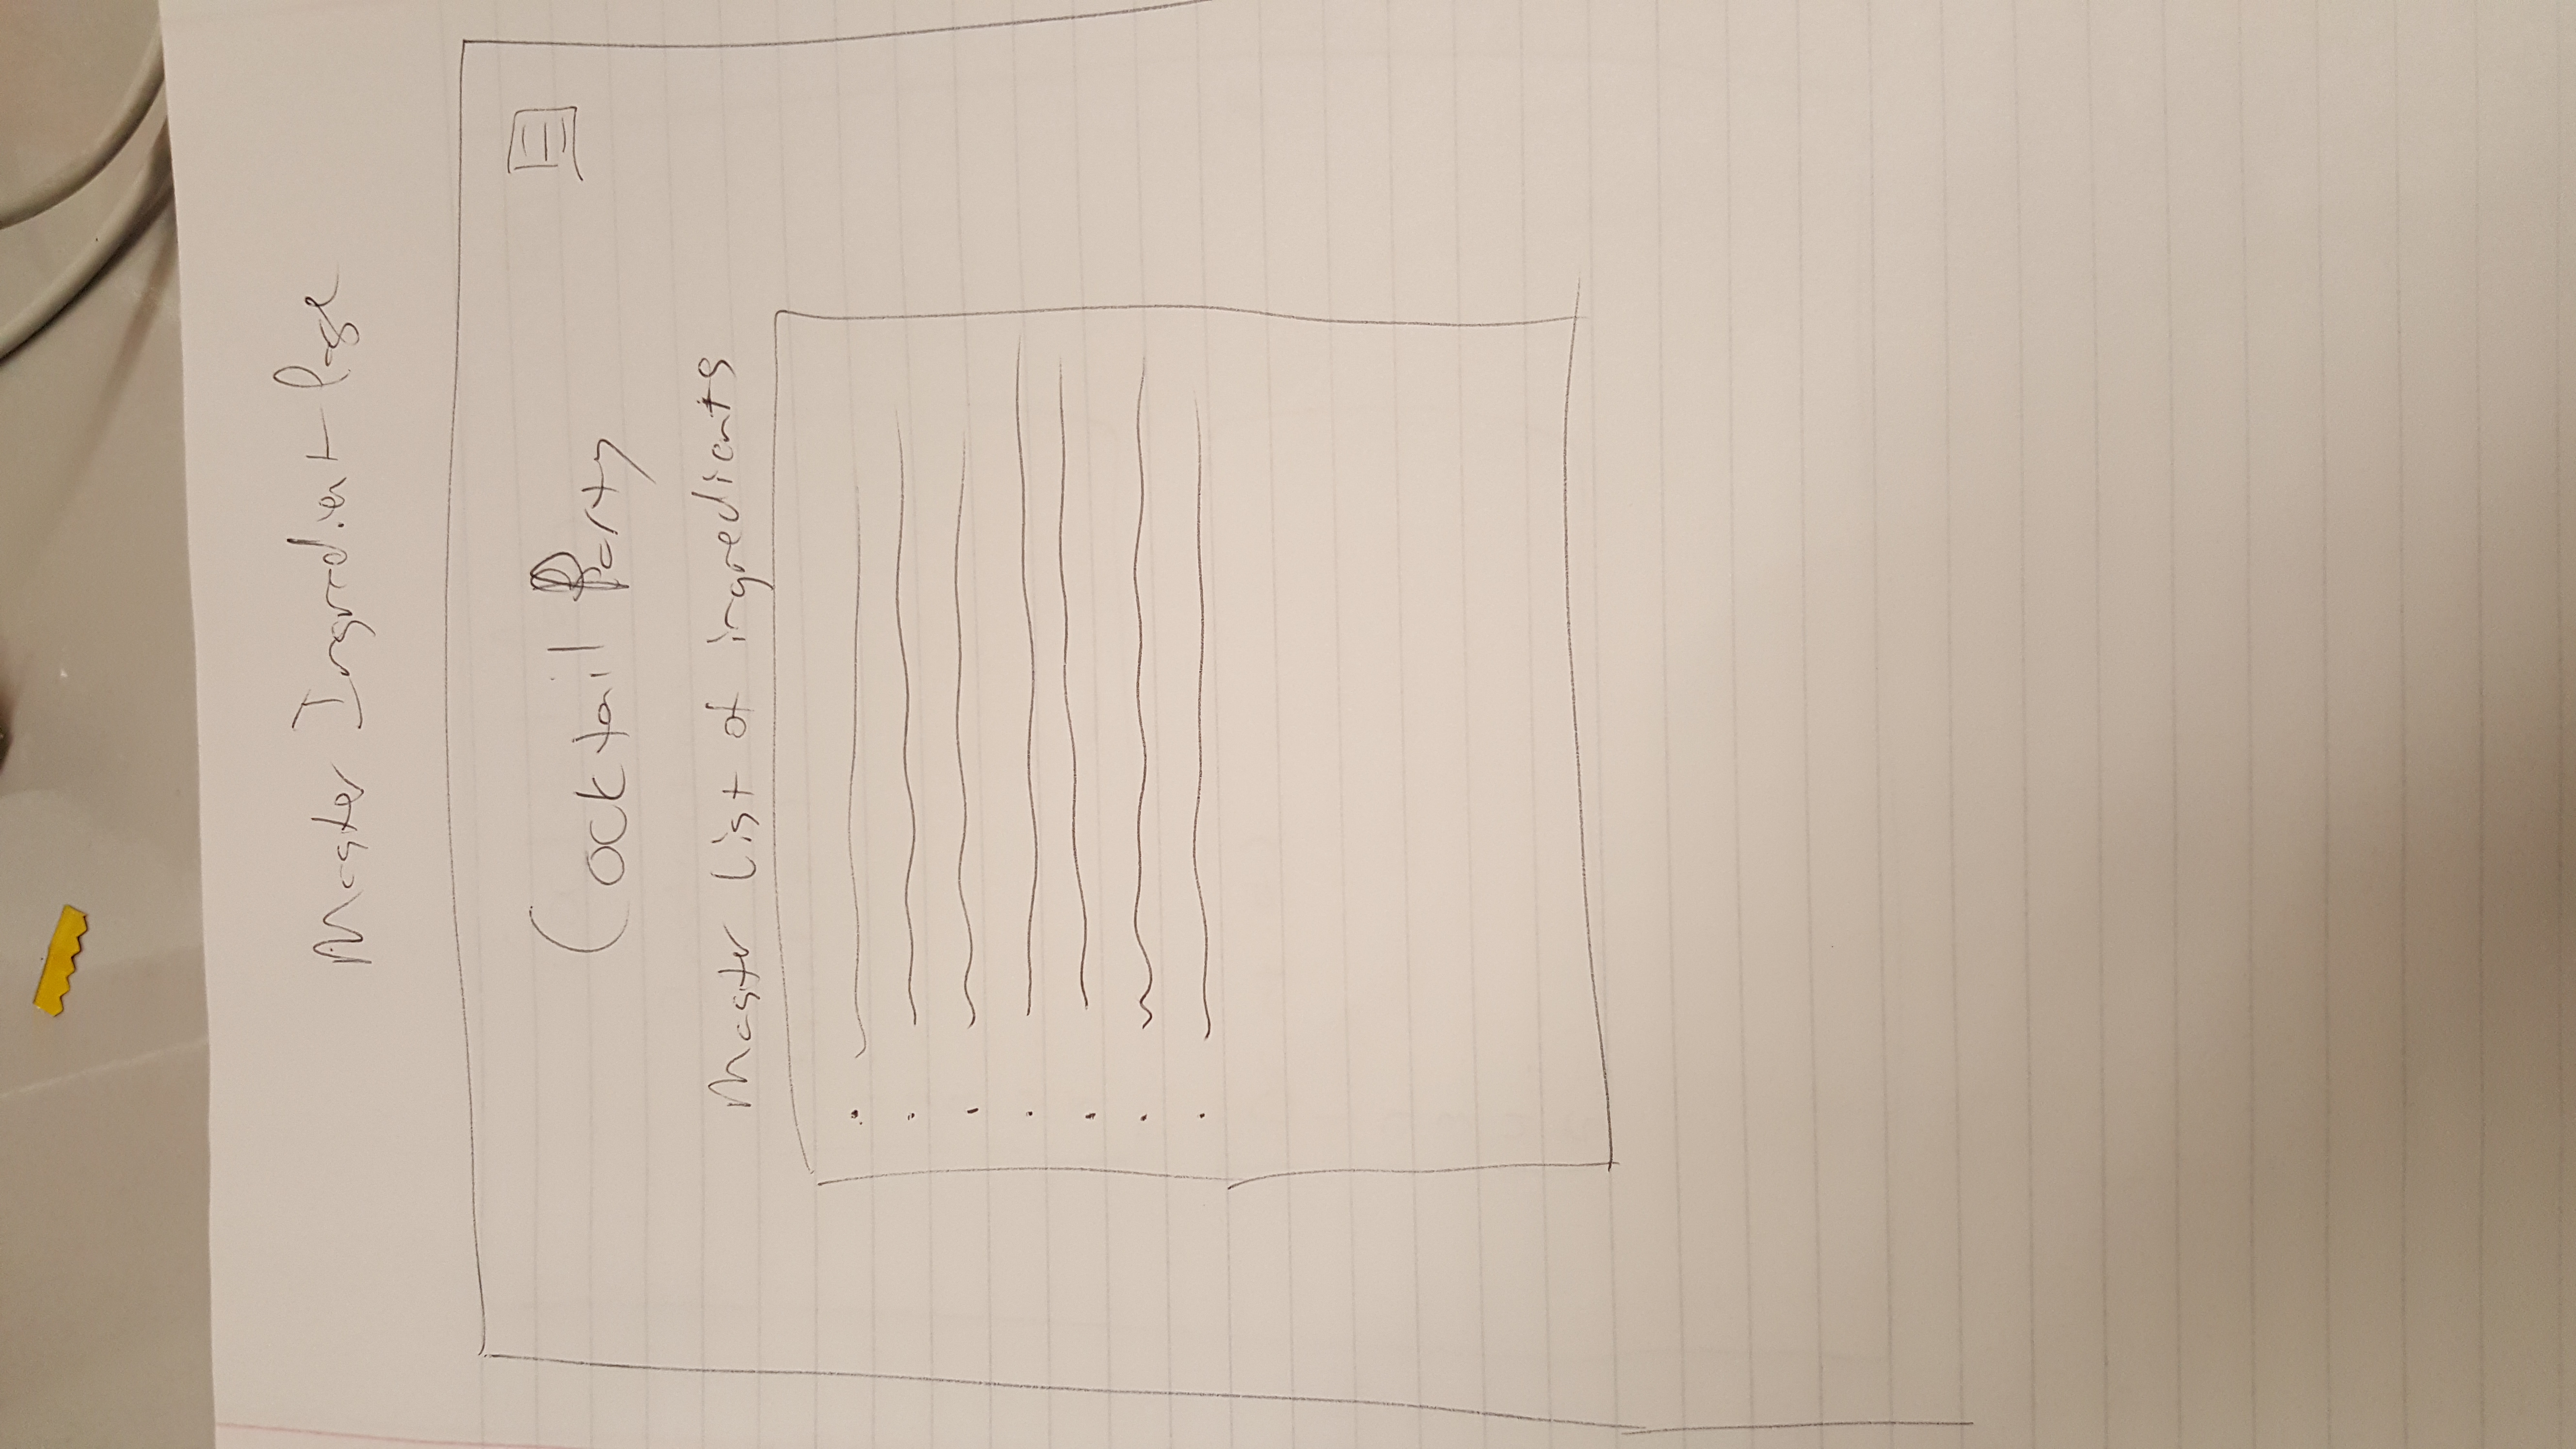 Master Ingredient Page
Cocktail Party
Master List of ingredients